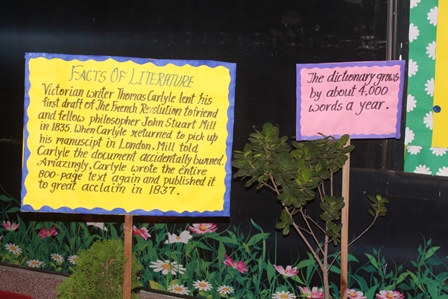 FACTS OF LITERATURE
Victorian writer Thomas Carlyle lent his
first draft of The French Revolution to friend
and fellow philosopher John Stuart Mill
in 1835. When Carlyle returned to pick up
his manuscipt in London, Mill told
Carlyle the document accidentally burned.
Amazingly, Carlyle wrote the entire
800-page text again and published it
to great acclaim in 1837.
The dictionary grows
by about 4,000
words a year.